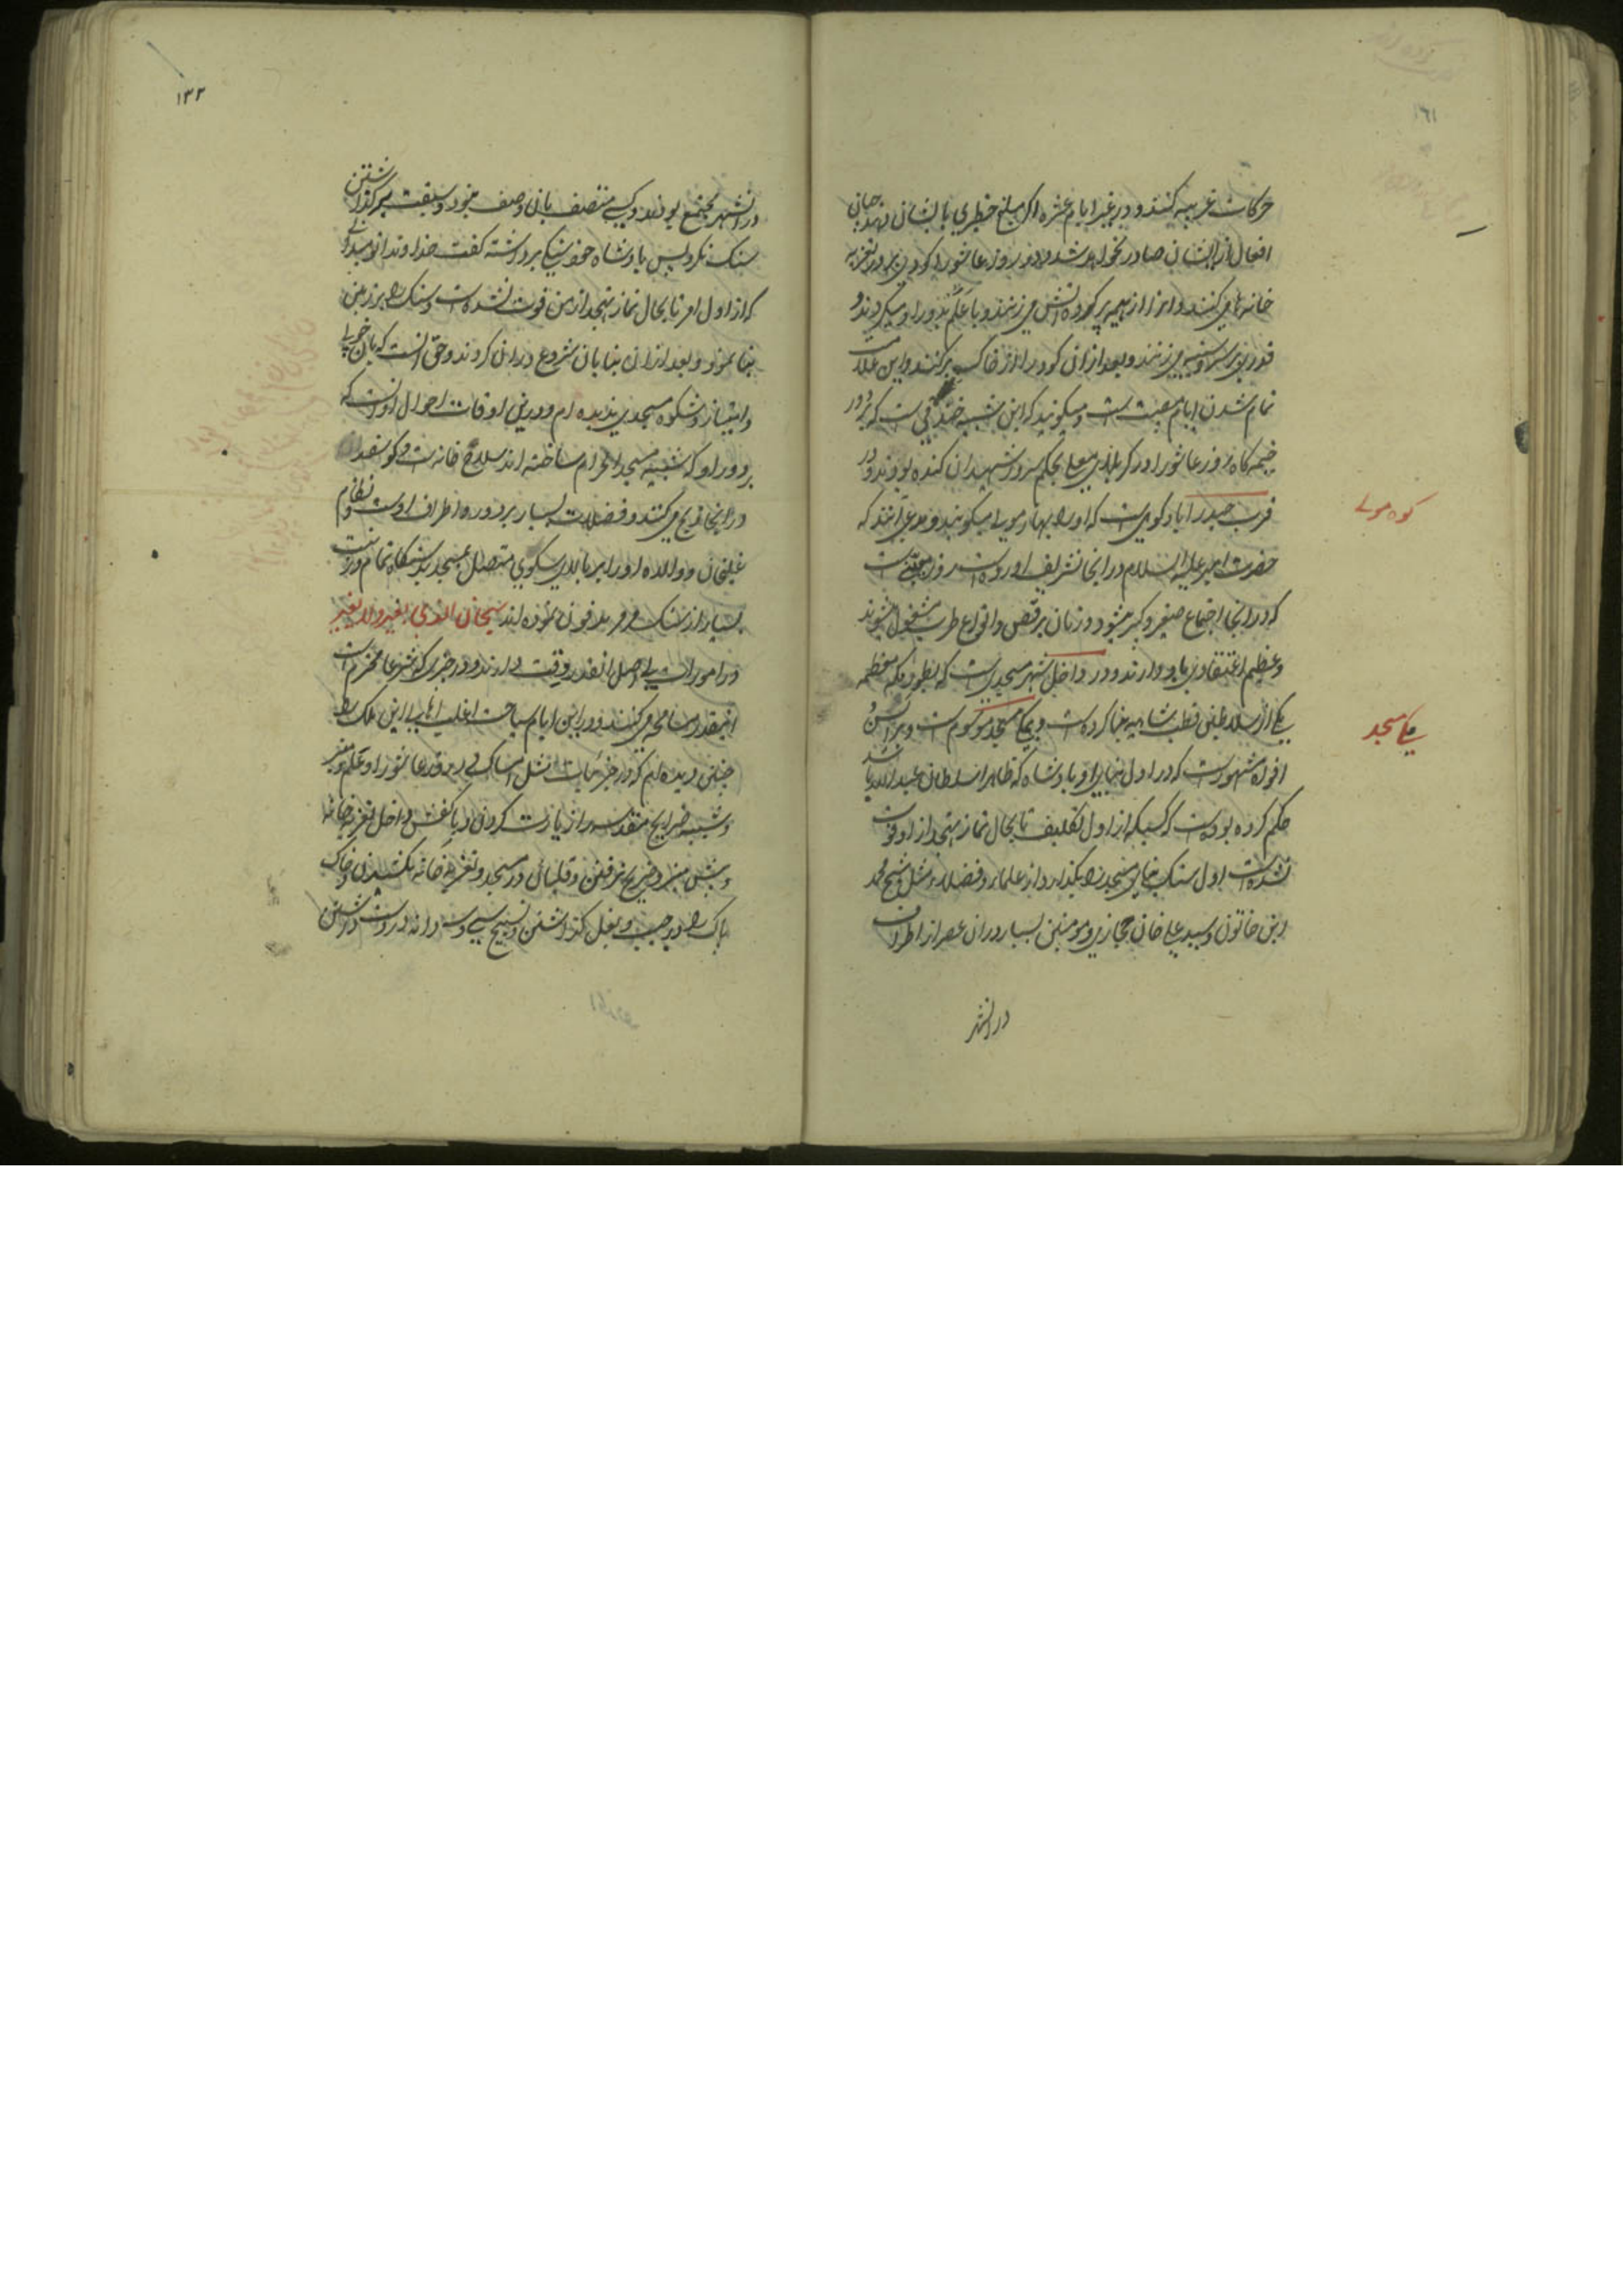 ۱۶۱
حرکات غریبه کنند و در غیر ایام عشره اگر مبلغ خطیری بایشان دهند چنان
افعال از ایشان صادر نخواهد شد و در روز عاشورا کودی بر در تعزیه
خانه ها می کنند و انرا از هیمه پر کرده آتش می زنند و با علم بدور او میگردند و
قدری شربت می ریزند و بعد از ان کود را از خاک پر کنند و این علامت
تمام شدن ایام مصیبت است و میگویند که این شبیه خندقی است که بر دور
خیمه گاه روز عاشورا در کربلای معلی بحکم سرور شهیدان کنده بودند و در
قرب حیدراباد کوهی است که او را بهار مولی میگویند و مدعی آنند که
حضرت امیر علیه السلام در اینجا تشریف اورده است روز معینی است
که در اینجا اجتماع صغیر و کبیر میشود و زنان برقص و انواع طرب مشغول میشوند
و عظیم اعتقادی باو دارند و در داخل شهر مسجدی است که بطور مکه معظمه
یکی از سلاطین قطب شاهیه بنا کرده است و بمکا مسجد موسوم است و در السن و
افواه مشهور است که در اول بنای او پادشاه که ظاهرا سلطان عبد الله باشد
حکم کرده بوده است که کسیکه از اول تکلیف تا بحال نماز تهجد از او فوت
نشده است اول سنگ بنای مسجد را بگذارد از علما و فضلا مثل شیخ محمد
ابن خاتون و سید علی خان حجازی و مومنین بسیار دران عصر از اطراف
در انشهر
کوه مولی
مکا مسجد
۱۳۲
در انشهر مجتمع بودند و کسی متصف بان وصف نبود و سبقت بر گذاشتن
سنگ نکرد پس پادشاه خود سنگ برداشته گفت خداوندا تو میدانی
که از اول امر تا بحال نماز تهجد از من فوت نشده است و سنگ را بر زمین
بنا نمود و بعد از ان بنایان شروع دران کردند و حق انست که بان خوبی
و امتیاز و شکوه مسجدی ندیده ام و در این اوقات احوال او انست که
بر دور او که شبیه مسجد الحرام ساخته اند سلاخ خانه است و گوسفند
در انجا ذبح می کنند و فضلات بسیار بر دوره اطراف اوست و نظام
علیخان و والده او را بر بالای سکوی متصل بمسجد به پیشگاه تمام و زینت
بسیار از سنگ مرمر مدفون نموده اند سبحان الذی یغیر و لا یتغیر
در امورات بی اصل انقدر دقت دارند و در چیزی که شرعا محترم است
اینقدر مسامحه می کنند و در این ایام سیاحت اغلب اهالی این ملک را
چنین دیده ام که در جزئیات مثل امساک در روز عاشورا و علم و منبر
و شبیه ضرایح مقدسه را زیارت کردن و با کفش داخل تعزیه خانه
و پیش منبر و ضریح نرفتن و قلیان در مسجد و تعزیه خانه نکشیدن و خاک
پاک را در جیب و بغل گذاشتن و تسبیح سی و سه دانه در دست داشتن